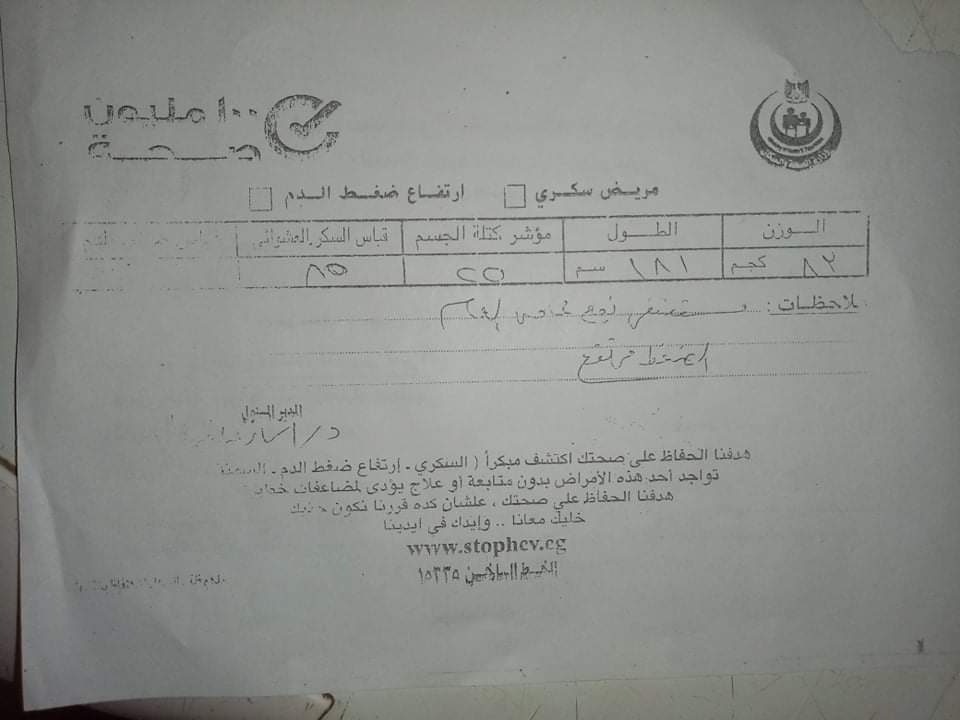 ١٠٠ مليون
صحة
مريض سكري
ارتفاع ضغط الدم
الوزن
الطول
مؤشر كتلة الجسم
قياس السكر العشوائي
٨٢ كجم
١٨١ سم
٢٥
٨٥
ملاحظات :
الضغط مرتفع
المدير المسئول
هدفنا الحفاظ على صحتك اكتشف مبكراً ( السكري - إرتفاع ضغط الدم - السمنة
تواجد أحد هذه الأمراض بدون متابعة أو علاج يؤدى لمضاعفات
هدفنا الحفاظ على صحتك ، علشان كده قررنا نكون جنبك
خليك معانا .. وإيدك في ايدينا
www.stophcv.eg
الخط الساخن ١٥٣٣٥